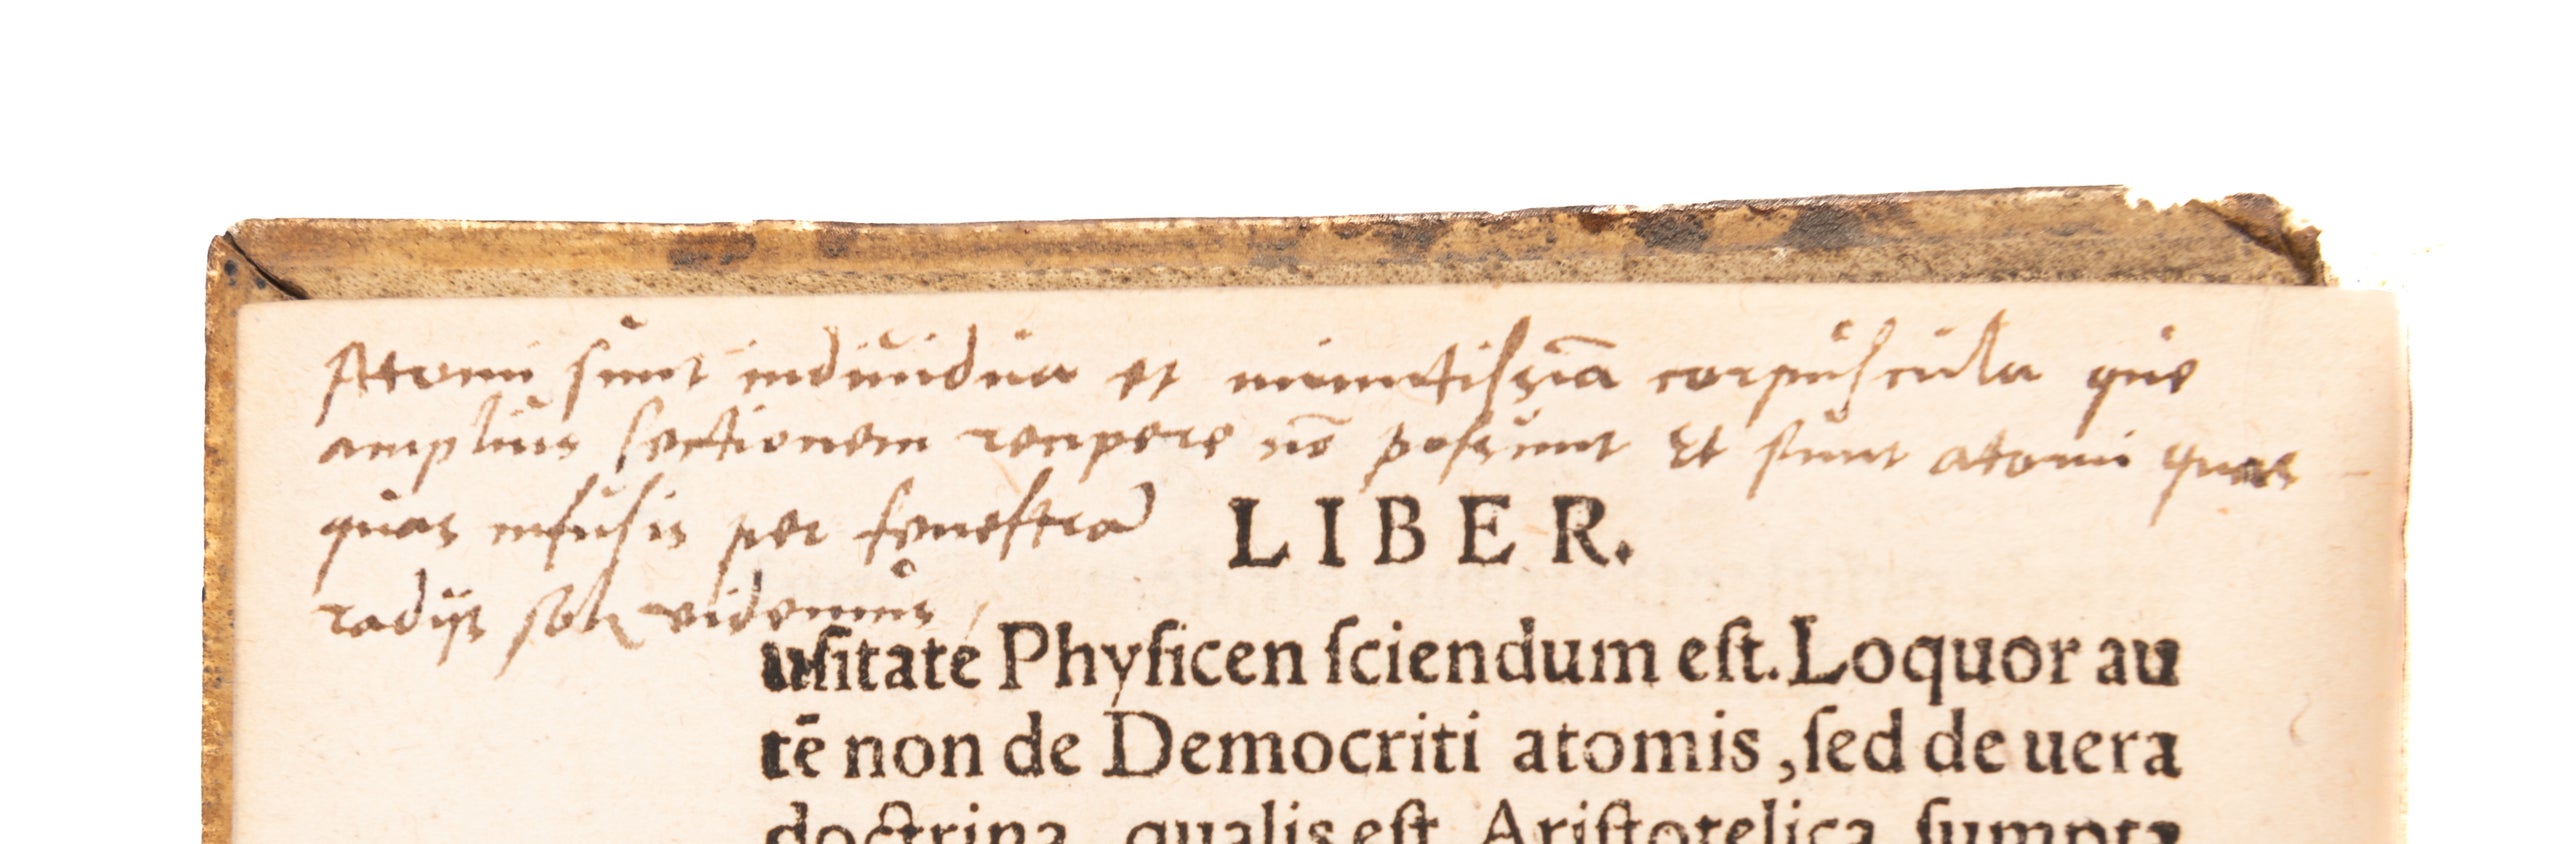 Atomi sunt indiuidua et minutissīa corpuscula que
amplius sectionem recipere nō possunt Et sunt atomi quas
quas infusis per fenestrā
LIBER.
radijs sol videmus
usitate Physicen sciendum est. Loquor au
tē non de Democriti atomis, sed de uera
doctrina, qualis est Aristotelica sumpta